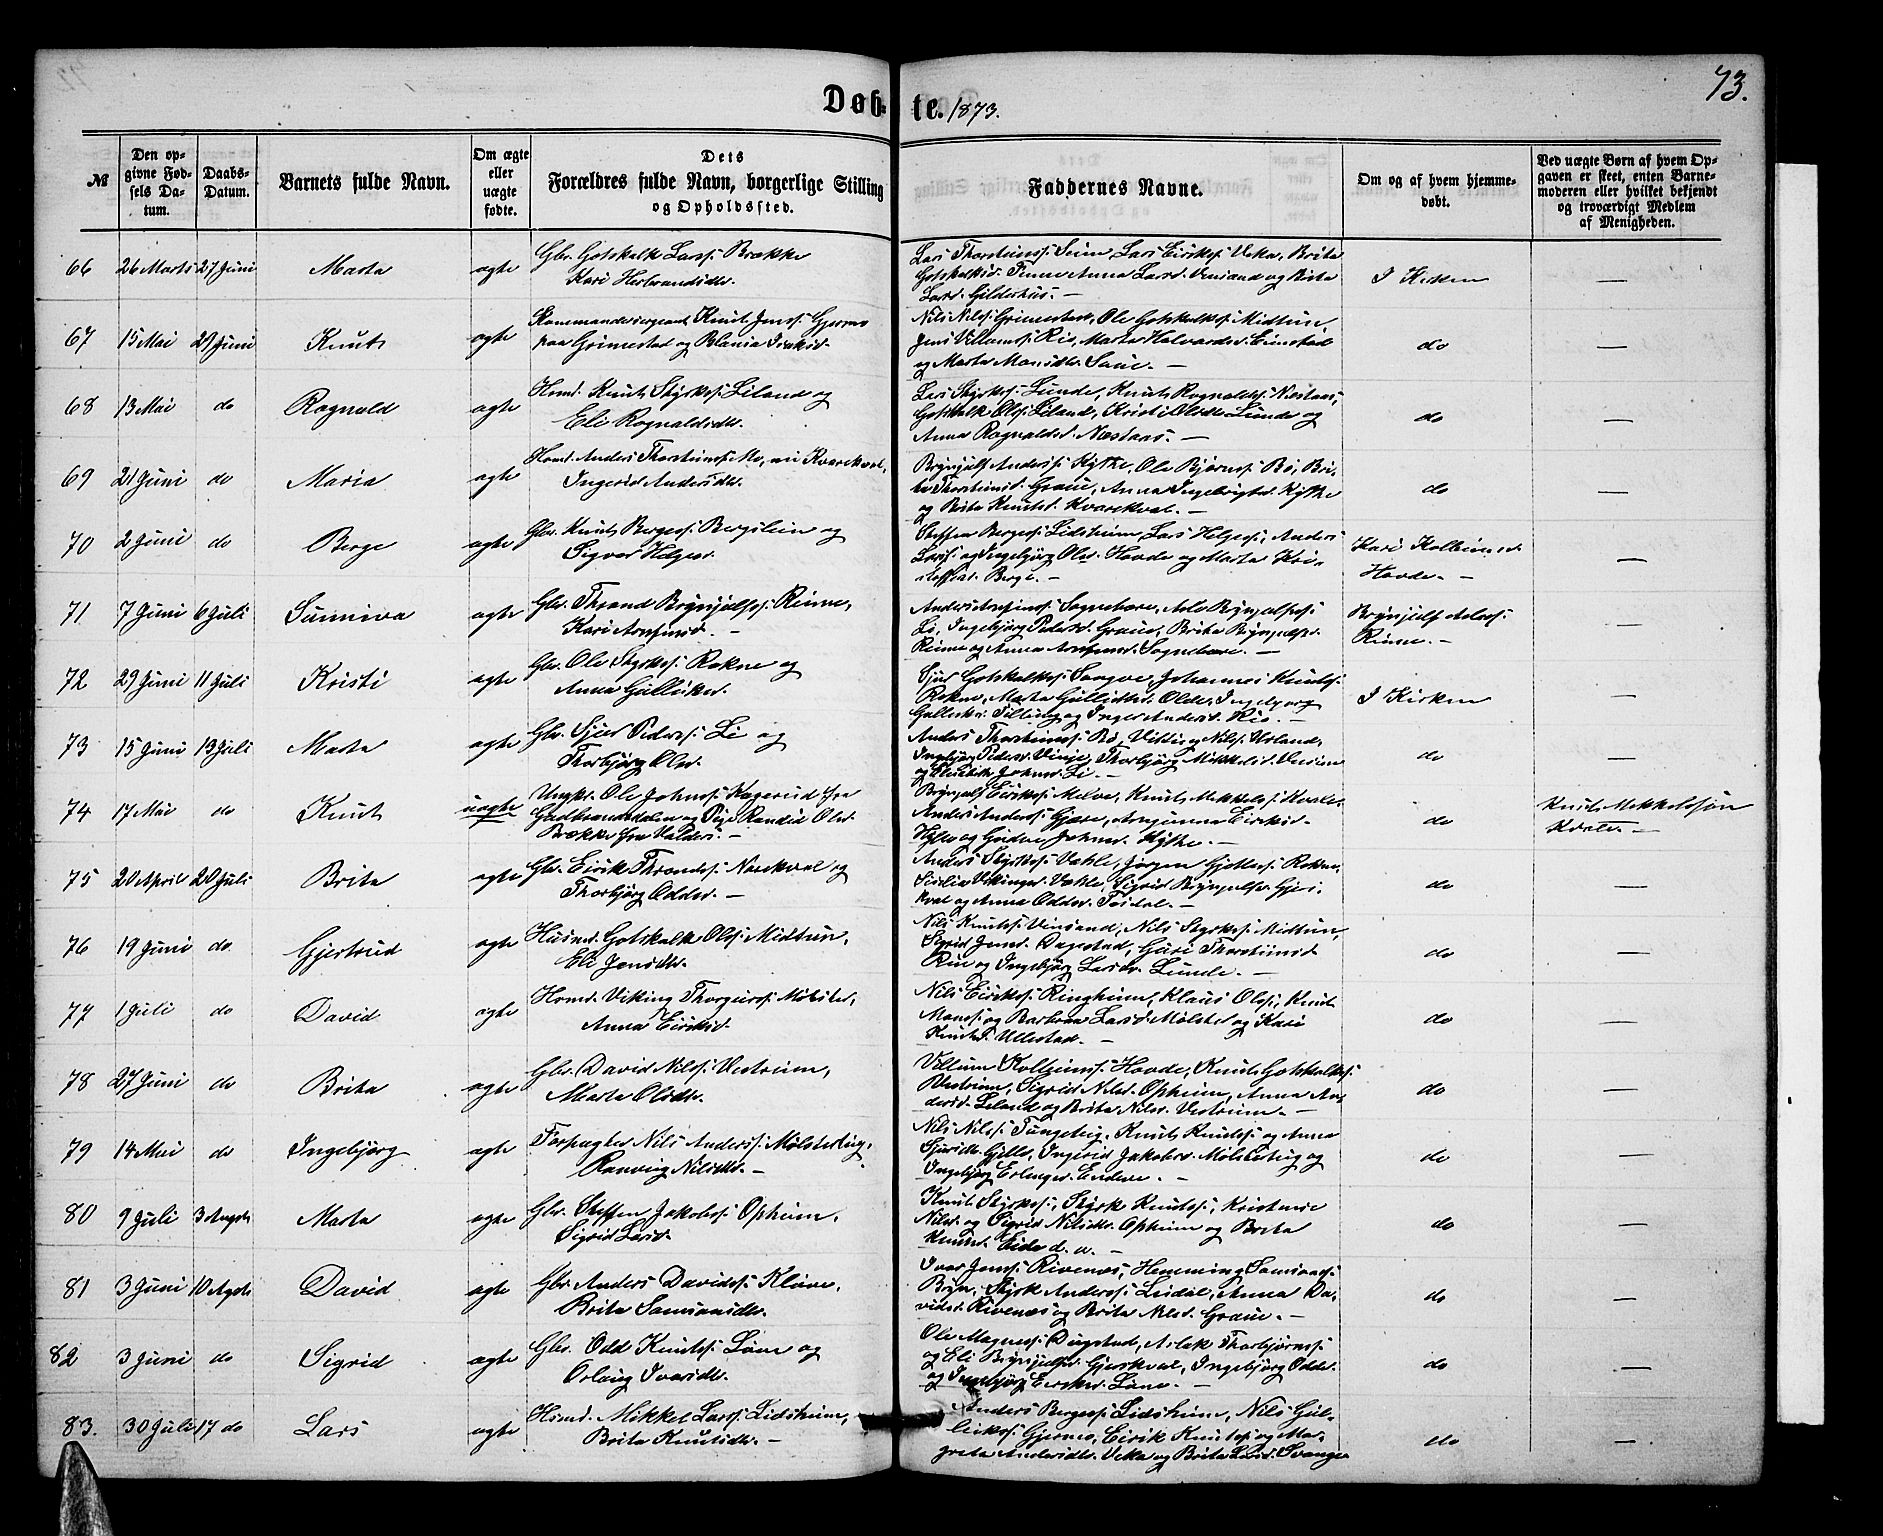 73.
Døbte. 1873.
№
Den opgivne Fødsels Datum.
Daabs-Datum.
Barnets fulde Navn.
Om ægte eller uægte fødte.
Dets Forældres fulde Navn, borgerlige Stilling og Opholdssted.
Faddernes Navne.
Om og af hvem hjemmedøbt.
Ved uægte Børn af hvem Opgaven er skeet, enten Barnemoderen eller hvilket bekjendt og troværdigt Medlem af Menigheden.
66 26 Marts 27 Juni Marta ægte Gbr. Gotskalk Larss: Brække
Kari Herbrandsdr.
Lars Thorsteinss: Seim, Lars Eirikss: Veka, Brita
Gotskalksd. Finne Anna Larsd. Vinsand og Brita
Larsd. Gildehus. —
I Kirken —
67 15 Mai 29 Juni Knut ægte Kommandersergeant Knut Jenss: Gjerme
paa Grimestad og
Nils Nilss: Grimestad, Ole Gotskalkss: Midtun,
Jens Villumss: Rio, Marta Halvardsd. Eimstad
og Marta Monsdr. Saue. —
do —
68 13 Mai do Ragnald ægte Hmd. Knut Styrkss: Liland og
Eli Ragnaldsdr.
Lars Styrkss: Lunde, Knut Ragnaldss: Næstaas,
Gotskalk Olss: Liland, Kristi Olsdr Lunde og
Anna Ragnaldsd. Næstaas. —
do —
69 21 Juni do Maria ægte Hmd. Anders Thorsteinss: Mo, nu Kvarekval,
Ingerid Andersdr.
Brynjulf Anderss: Kyte, Ole Bjørnss: Bø, Bri-
ta Thorsteinsd. Graue, Anna Ingebrigtsd. Kyte
og Brita Knutsd. Kvarekval. —
do —
70 2 Juni do Berge ægte Gbr. Knut Bergess: Bergslien og
Sigvor Helgesd.
Steffen Bergess: Lidsheim, Lars Helgess:, Anders
Larss: og Ingebjørg Olsd. Hovde og Marta Kri-
stoffersd. Berge. —
Kari Kolbeinsd.
Hovde. — —
71 7 Juni 6 Juli Sunniva ægte Gbr. Thrond Brynjulfss: Rime,
Kari Arnfinsd. —
Anders Arnfinss: Sognebøre, Asle Brynjulfss:
Li, Ingebjørg Pedersd. Graue, Brita Brynjulfsd.
Rime og Anna Arnfinsd. Sognebøre. —
Brynjulf Asless:
Rime. — —
72 29 Juni 11 Juli Kristi ægte Gbr. Ole Styrkss: Rokne og
Anna Gulleiksd.
Sjur Gotskalkss: Saagve, Johannes Knutss:
Rokne, Marta Gulleiksd. Olde, Ingebjørg
Gulleiksd. Tillung og Inger Andersd. Rio. —
I Kirken —
73 15 Juni 13 Juli Marta ægte Gbr. Sjur Pederss: Li og
Thorbjørg Olsd.
Anders Thorsteinss: Bø, Viking Nilss: Urland,
Ingebjørg Pedersd. Vinje, Thorbjørg Mikkelsd.
og Elisabeth Johnsd. Li. —
do —
74 17 Mai do Knut uægte Ungkr. Ole Johnss: fra
Gudbrandsdalen og Pige Randid Olsd.
Brække fra Valders. —
Brynjulf Eirikss: Melve, Knut Mikkelss: Kvale,
Anders Anderss: Gjøre, Arngunna Eiriksd.
og Gudve Johnsd. Kyte. —
do Knut Mikkelssøn
Kvale. —
75 20 April 20 Juli Brita ægte Gbr. Eirik Throndss: Norekval og
Thorbjørg Oddsd. —
Anders Styrkss: Væhle, Jørgen Gjottess: Rokne,
Sisilia Vikingsd. Væhle, Sigrid Brynjulfsd. Gjers-
kval og Anna Oddsd.
do —
76 19 Juni do. Gjertrud ægte Husmd. Gotskalk Olss: Midtun,
Eli Jensdr.
Nils Knutss: Vinsand, Nils Styrkss: Midtun,
Sigrid Jensd. Dagestad, Guri Thorsteinsd.
Rio og Ingebjørg Larsdr. Lunde. —
do —
77 1 Juli do David ægte Hmd. Viking Thorgerss: Mølster,
Anna Eiriksd.
Nils Eirikss: Ringheim, Klaus Olss:, Knut
Monss: og Barbraa Larsd. Mølster og Kari
Knutsd. Ullestad. —
do —
78 27 Juni do Brita ægte Gbr. David Nilss: Vestreim,
Marta Olsdr.
Villum Kolbeinss: Hovde, Knut Gotskalkss:
Vestreim, Sigrid Nilsd. Opheim, Anna An-
dersd. Leland og Brita Nilsd. Vestreim. —
do —
79 14 Mai do Ingebjørg ægte Forpagter Nils Anderss: Mølsterteig,
Ranveig Nilsdr. —
Nils Nilss: Tungeteig, Knut Knutss: og Anna
Sjursdr. Gjelle, Ingerid Jakobsd. Mølsterteig og
Ingebjørg Erlingsd. Endeve. —
do —
80 9 Juli 3 Augst Marta ægte Gbr. Steffen Jakobss: Opheim,
Sigrid Larsd.
Knut Styrkss:, Styrk Knutss:, Kristense
Nilsd. og Sigrid Nilsdr. Opheim og Brita
Knutsd. Eide d. a. —
do —
81 3 Juni 10 Augst David ægte Gbr. Anders Davidss: Kløve,
Brita Samsonsdr.
Ivar Jenss: Rivenæs, Hemming Samsonss:
Bryn, Styrk Anderss: Lirdal, Anna Da-
vidsd. Rivenæs og Brita Nilsd. Graue. —
do —
82 3 Juni do Sigrid ægte Gbr. Odd Knutss: Løne og
Orlaug Ivarsdr.
Ole Magness: Dugstad, Aslak Thorbjørnss:
og Eli Brynjulfsd. Gjerskval, Ingebjørg Oddsd.
og Ingebjørg Eiriksd. Løne. —
do —
83. 30 Juli 17 do Lars ægte Hsmd. Mikkel Larss: Lidsheim,
Brita Knutsdr. —
Anders Bergess: Lidsheim, Nils Gul-
leikss: Gjerme, Eirik Knutss: og Ma-
greta Andersdr. Veka og Brita Larsd. Svange
do —